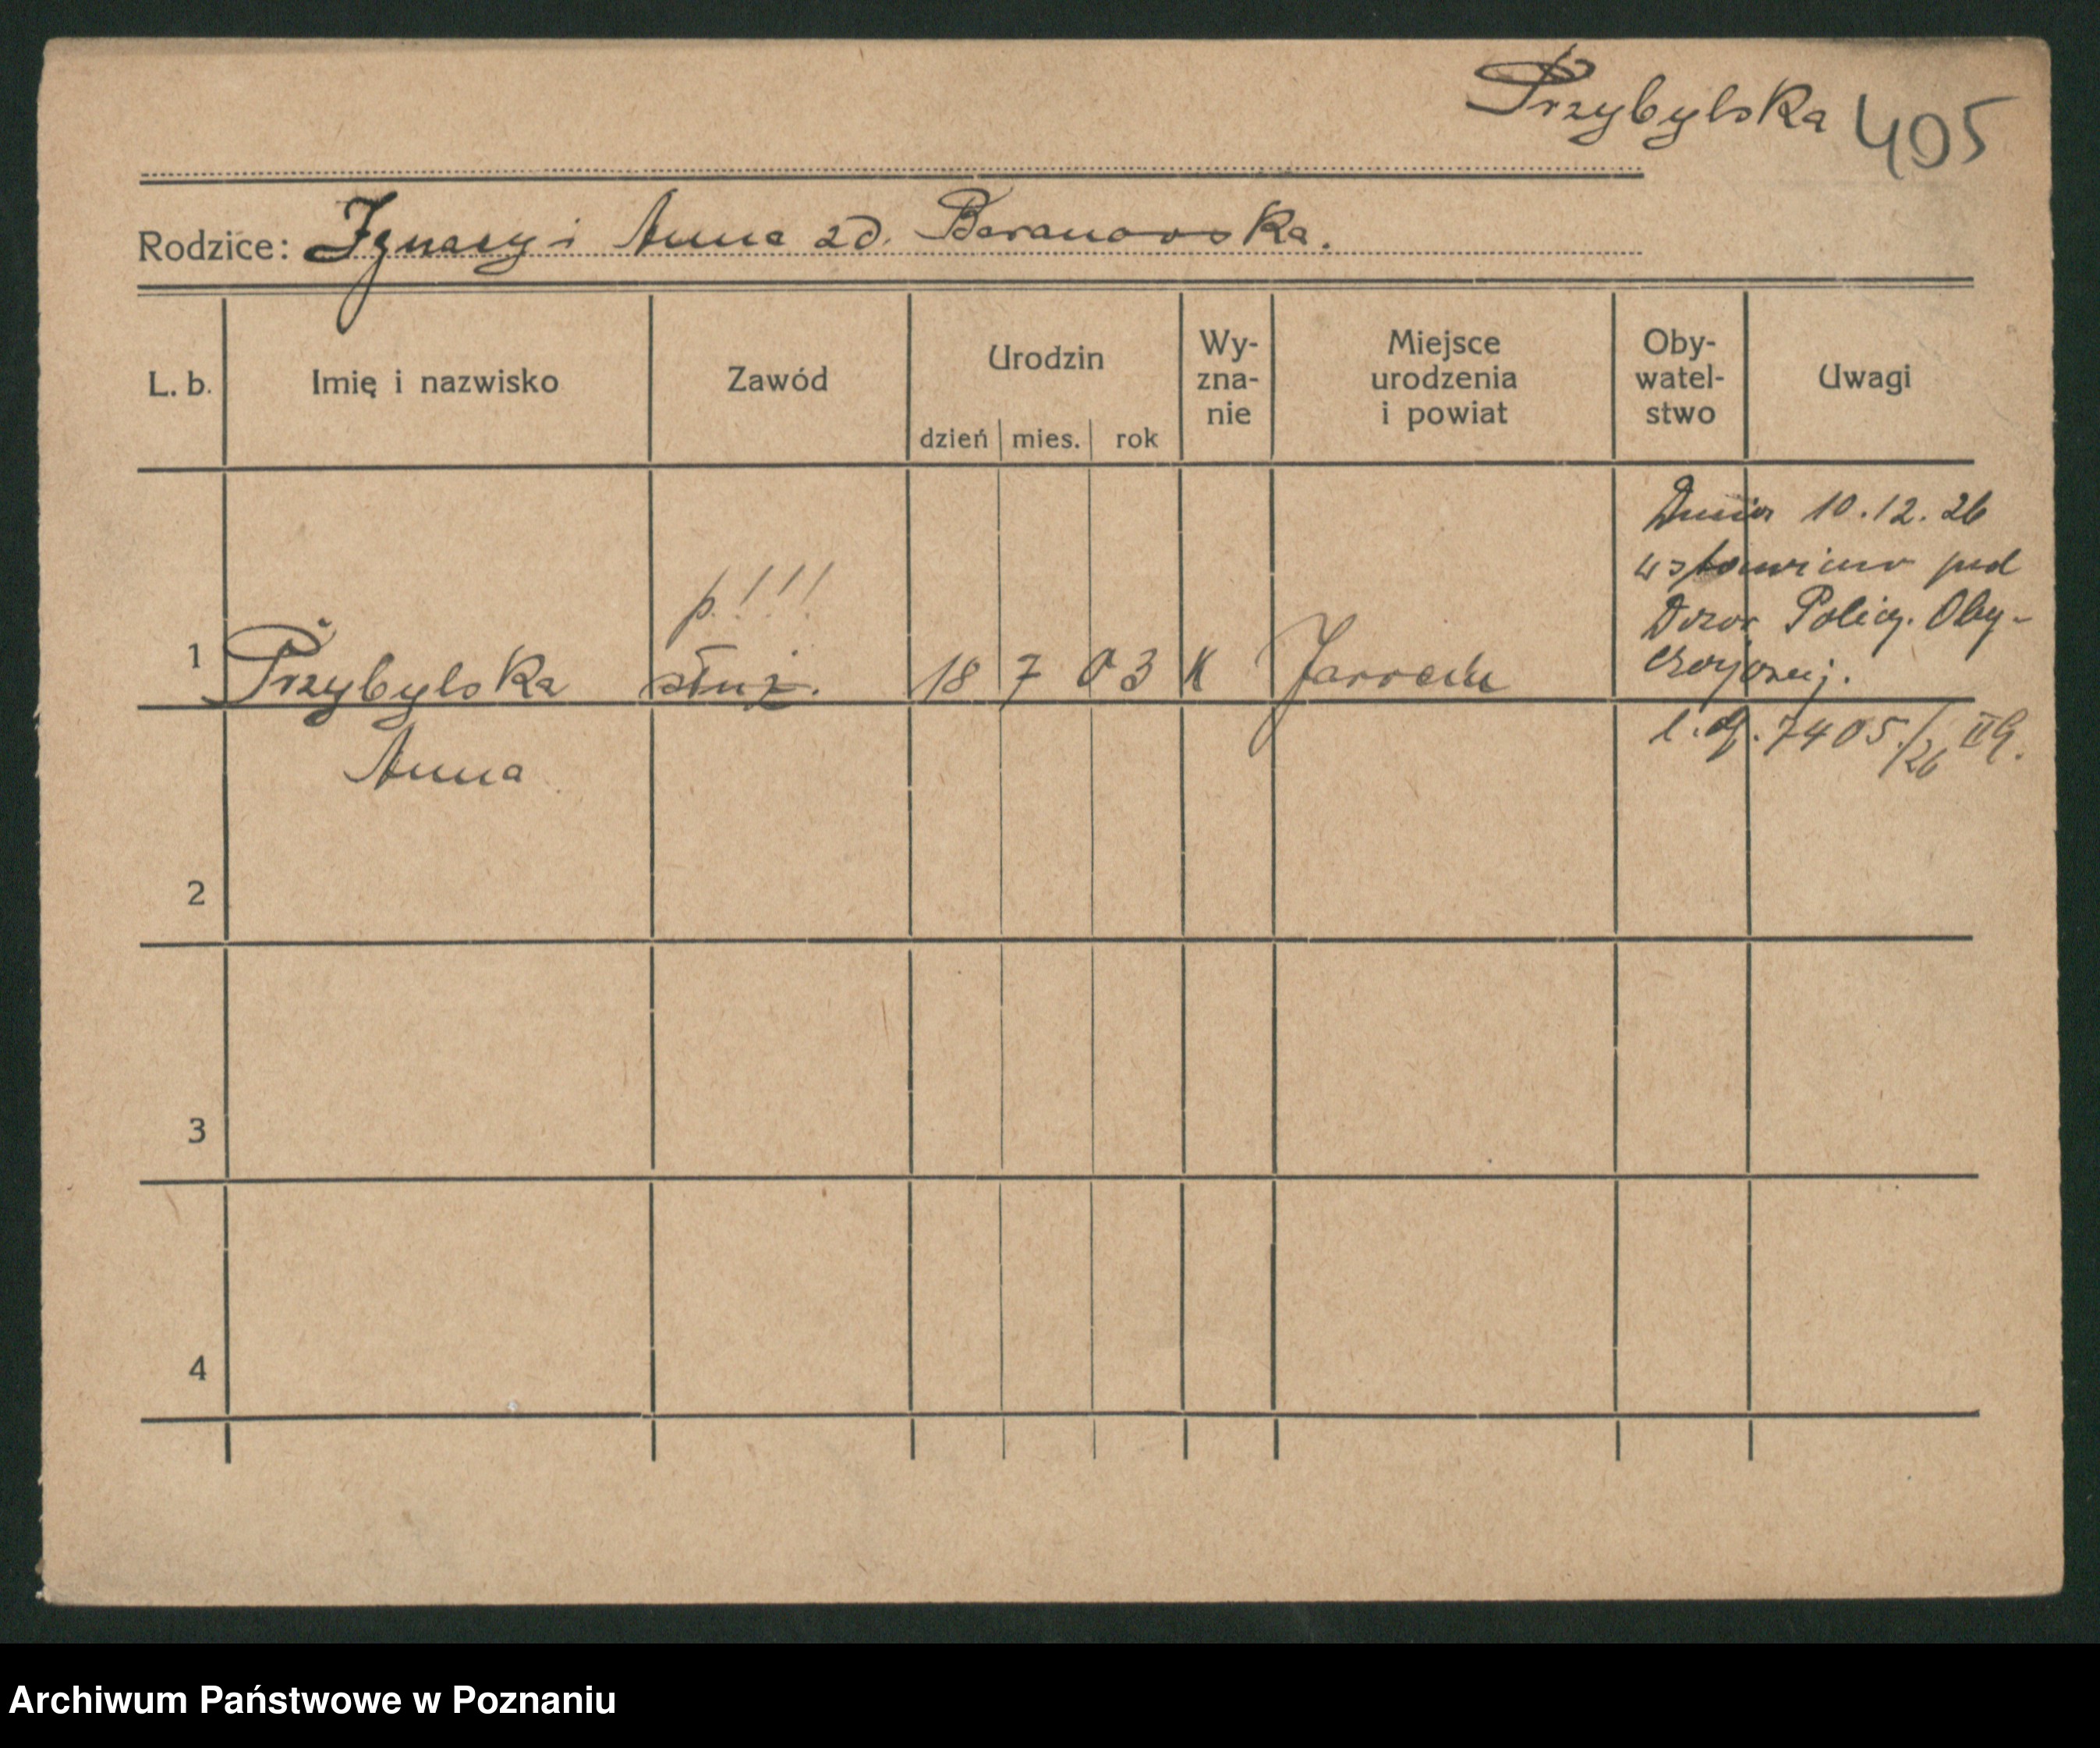 Przybylska 405
Rodzice: Ignacy i Anna zd. Baranowska.
L. b. Imię i nazwisko Zawód Urodzin dzień mies. rok Wy-zna-nie Miejsce urodzenia i powiat Oby-watel-stwo Uwagi
Dnia 10.12.26
wstawiono pod
Dozór Policy. Oby-
czajowej.
p.!!!
1 Przybylska służ. 18 7 03 K
Anna
l. dz. 7405/26
2
3
4
Archiwum Państwowe w Poznaniu